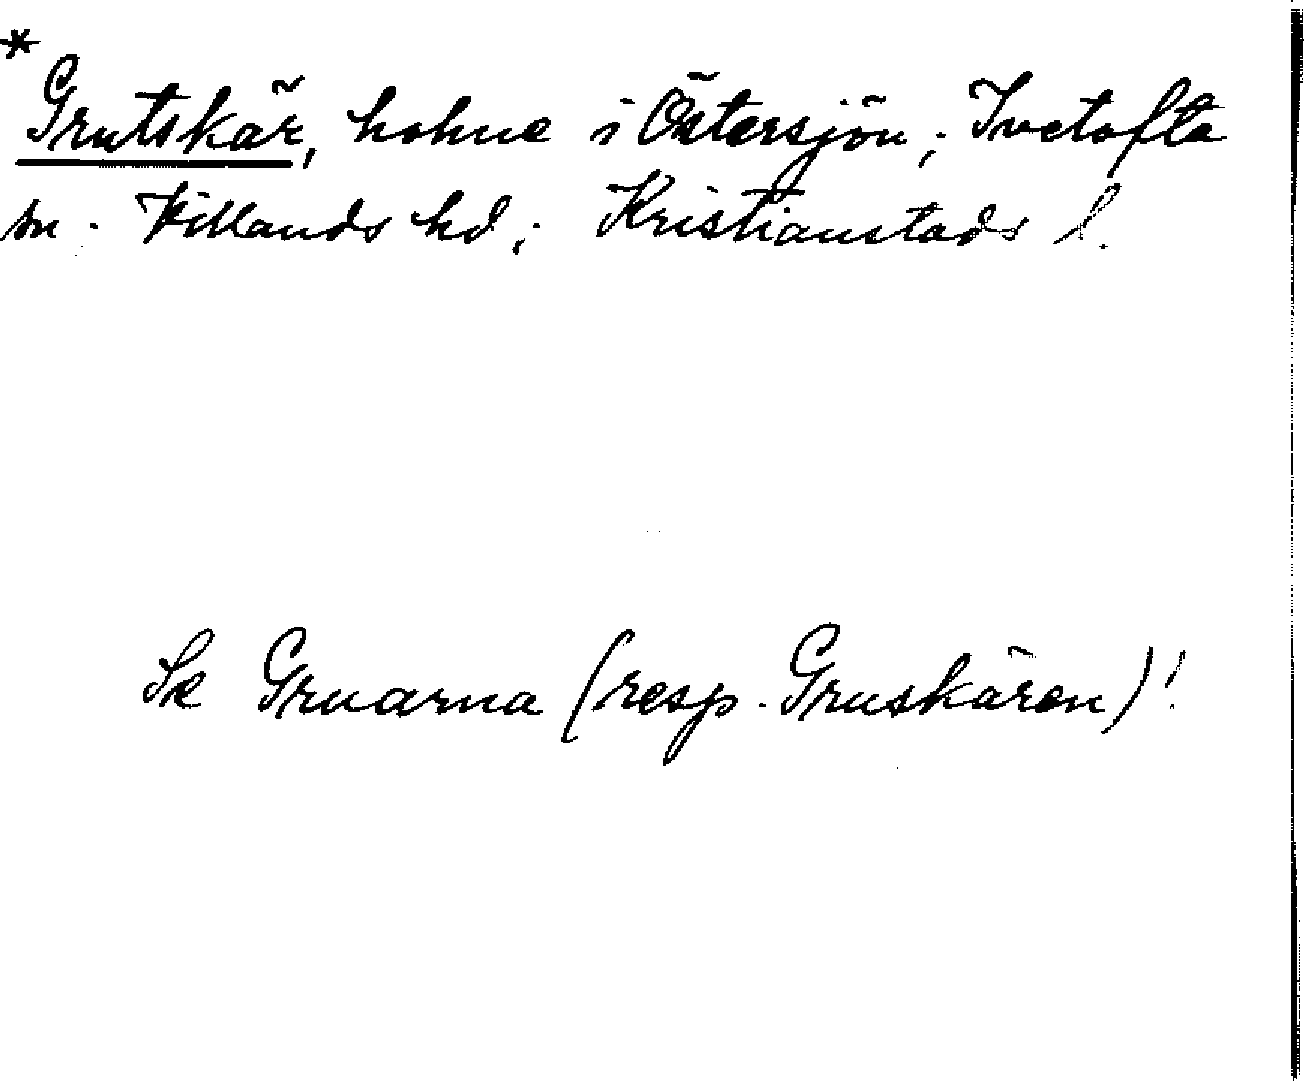 *
Grutskär, holme i Östersjön; Ivetofta
sn. Villands hd; Kristianstads l.
Se Gruarna (resp. Gruskären)!